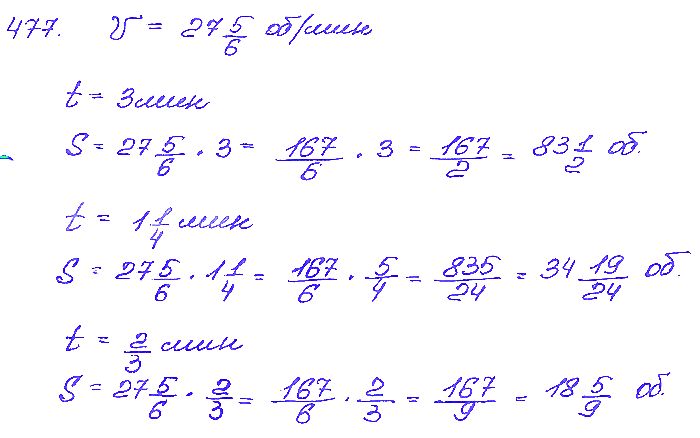 477. V = 27 5/6 об/мин
t = 3 мин
S = 27 5/6 · 3 = 167/6 · 3 = 167/2 = 83 1/2 об.
t = 1 1/4 мин
S = 27 5/6 · 1 1/4 = 167/6 · 5/4 = 835/24 = 34 19/24 об.
t = 2/3 мин
S = 27 5/6 · 2/3 = 167/6 · 2/3 = 167/9 = 18 5/9 об.